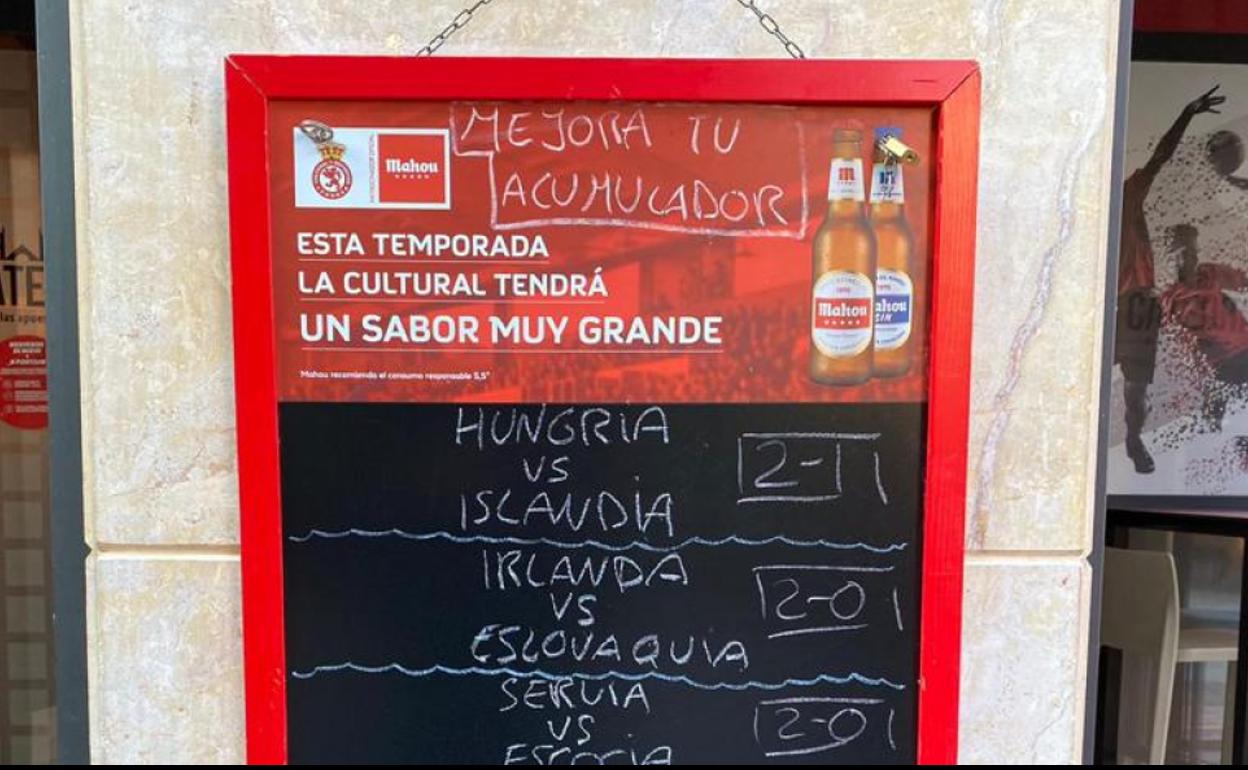 MEJORA TU
ACUMULADOR
Mahou
ESTA TEMPORADA
LA CULTURAL TENDRÁ
UN SABOR MUY GRANDE
Mahou recomienda el consumo responsable 5,5°
Mahou
SIN
HUNGRIA
VS
ISLANDIA
2-1
IRLANDA
VS
ESLOVAQUIA
2-0
SERVIA
VS
ESCOCIA
2-0